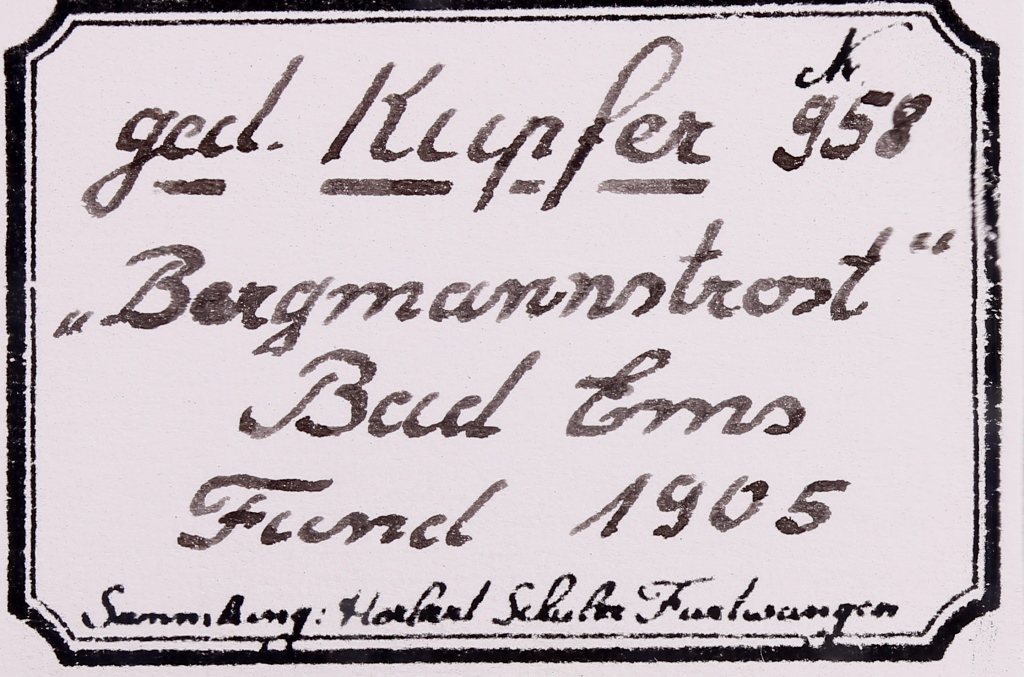 N
ged. Kupfer 958
„Bergmannstrost“
Bad Ems
Fund 1905
Sammlung: Herbert Schuler Furtwangen